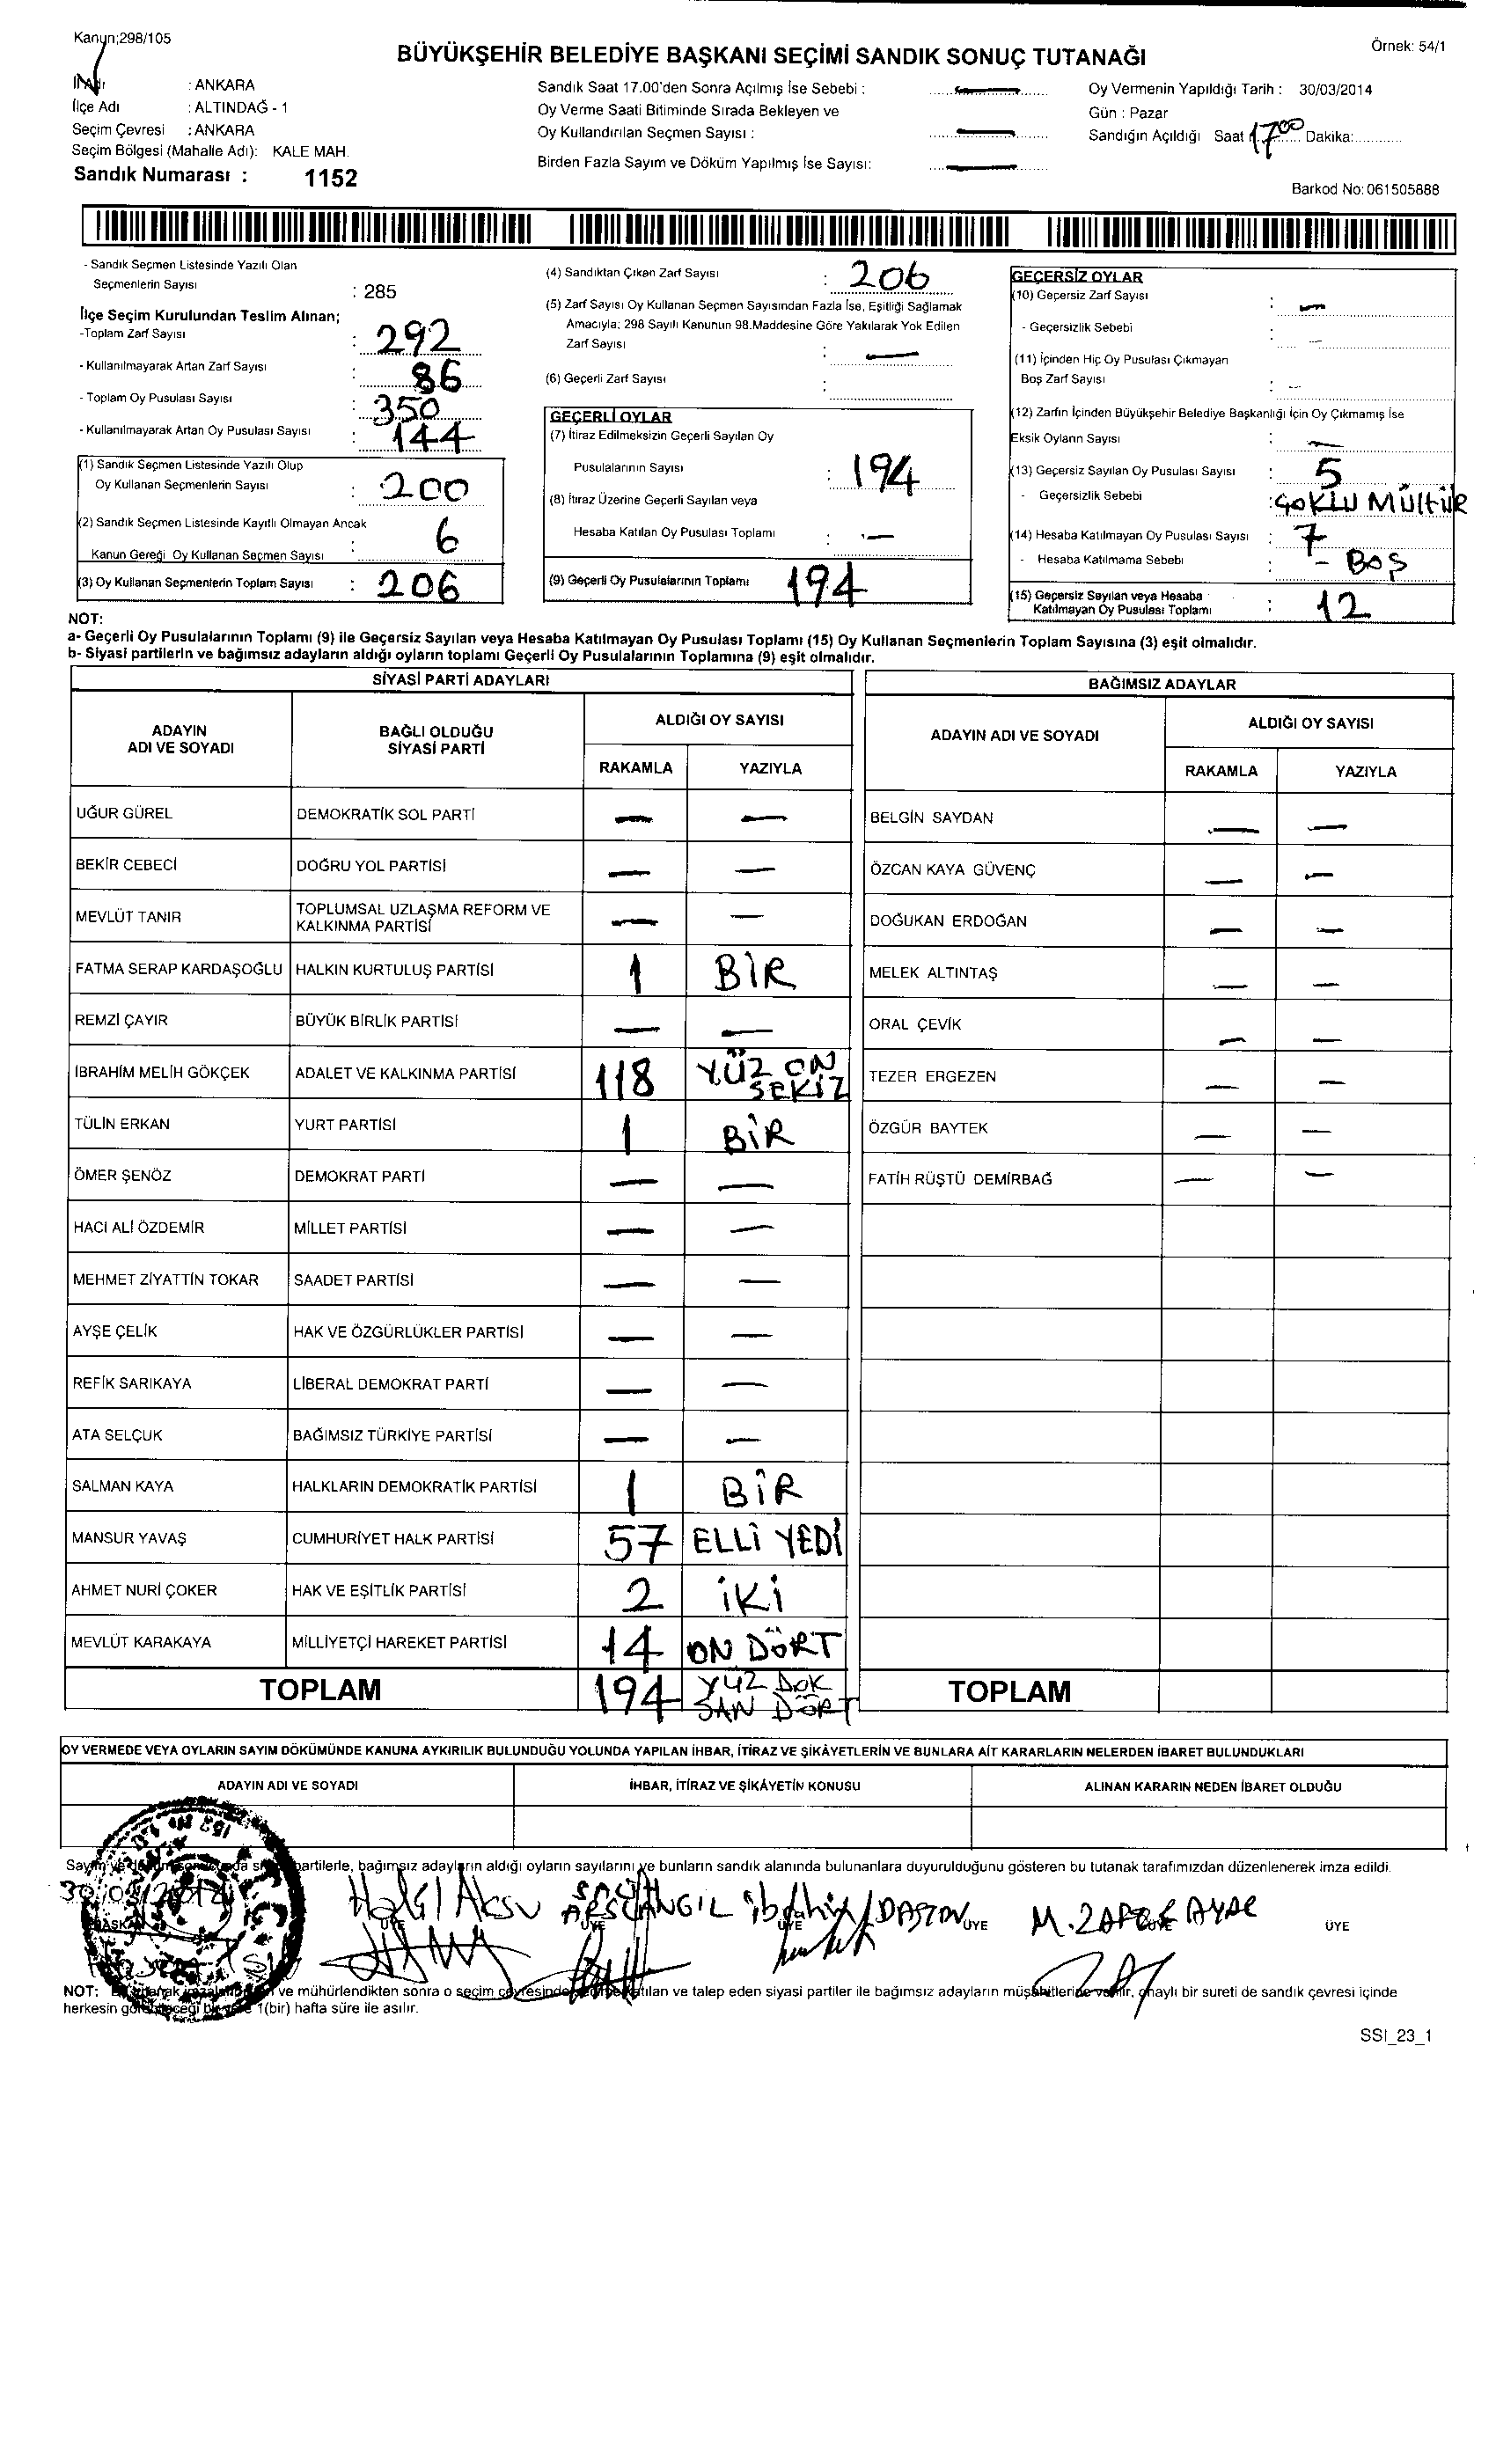 Kanun;298/105
Örnek: 54/1
BÜYÜKŞEHİR BELEDİYE BAŞKANI SEÇİMİ SANDIK SONUÇ TUTANAĞI
: ANKARA
İlçe Adı : ALTINDAĞ - 1
Seçim Çevresi : ANKARA
Seçim Bölgesi (Mahalle Adı): KALE MAH.
Sandık Numarası : 1152
Sandık Saat 17.00'den Sonra Açılmış İse Sebebi : —
Oy Verme Saati Bitiminde Sırada Bekleyen ve
Oy Kullandırılan Seçmen Sayısı : —
Birden Fazla Sayım ve Döküm Yapılmış İse Sayısı: —
Oy Vermenin Yapıldığı Tarih : 30/03/2014
Gün : Pazar
Sandığın Açıldığı Saat 17 00 Dakika:
Barkod No: 061505888
- Sandık Seçmen Listesinde Yazılı Olan
Seçmenlerin Sayısı : 285
İlçe Seçim Kurulundan Teslim Alınan;
-Toplam Zarf Sayısı : 292
- Kullanılmayarak Artan Zarf Sayısı : 86
- Toplam Oy Pusulası Sayısı : 350
- Kullanılmayarak Artan Oy Pusulası Sayısı : 144
(1) Sandık Seçmen Listesinde Yazılı Olup
Oy Kullanan Seçmenlerin Sayısı : 200
(2) Sandık Seçmen Listesinde Kayıtlı Olmayan Ancak
Kanun Gereği Oy Kullanan Seçmen Sayısı : 6
(3) Oy Kullanan Seçmenlerin Toplam Sayısı : 206
(4) Sandıktan Çıkan Zarf Sayısı : 206
(5) Zarf Sayısı Oy Kullanan Seçmen Sayısından Fazla İse, Eşitliği Sağlamak
Amacıyla; 298 Sayılı Kanunun 98.Maddesine Göre Yakılarak Yok Edilen
Zarf Sayısı : —
(6) Geçerli Zarf Sayısı :
GEÇERLİ OYLAR
(7) İtiraz Edilmeksizin Geçerli Sayılan Oy
Pusulalarının Sayısı : 194
(8) İtiraz Üzerine Geçerli Sayılan veya
Hesaba Katılan Oy Pusulası Toplamı : —
(9) Geçerli Oy Pusulalarının Toplamı 194
GEÇERSİZ OYLAR
(10) Geçersiz Zarf Sayısı : —
- Geçersizlik Sebebi : —
(11) İçinden Hiç Oy Pusulası Çıkmayan
Boş Zarf Sayısı : —
(12) Zarfın İçinden Büyükşehir Belediye Başkanlığı İçin Oy Çıkmamış İse
Eksik Oyların Sayısı : —
(13) Geçersiz Sayılan Oy Pusulası Sayısı : 5
- Geçersizlik Sebebi : ÇOKLU MÜLTÜR
(14) Hesaba Katılmayan Oy Pusulası Sayısı : 7
- Hesaba Katılmama Sebebi : - BOŞ
(15) Geçersiz Sayılan veya Hesaba
Katılmayan Oy Pusulası Toplamı : 12
NOT:
a- Geçerli Oy Pusulalarının Toplamı (9) ile Geçersiz Sayılan veya Hesaba Katılmayan Oy Pusulası Toplamı (15) Oy Kullanan Seçmenlerin Toplam Sayısına (3) eşit olmalıdır.
b- Siyasi partilerin ve bağımsız adayların aldığı oyların toplamı Geçerli Oy Pusulalarının Toplamına (9) eşit olmalıdır.
SİYASİ PARTİ ADAYLARI
ADAYIN ADI VE SOYADI BAĞLI OLDUĞU SİYASİ PARTİ ALDIĞI OY SAYISI
RAKAMLA YAZIYLA
UĞUR GÜREL DEMOKRATİK SOL PARTİ — —
BEKİR CEBECİ DOĞRU YOL PARTİSİ — —
MEVLÜT TANIR TOPLUMSAL UZLAŞMA REFORM VE KALKINMA PARTİSİ — —
FATMA SERAP KARDAŞOĞLU HALKIN KURTULUŞ PARTİSİ 1 BİR
REMZİ ÇAYIR BÜYÜK BİRLİK PARTİSİ — —
İBRAHİM MELİH GÖKÇEK ADALET VE KALKINMA PARTİSİ 118 YÜZ ON SEKİZ
TÜLİN ERKAN YURT PARTİSİ 1 BİR
ÖMER ŞENÖZ DEMOKRAT PARTİ — —
HACI ALİ ÖZDEMİR MİLLET PARTİSİ — —
MEHMET ZİYATTİN TOKAR SAADET PARTİSİ — —
AYŞE ÇELİK HAK VE ÖZGÜRLÜKLER PARTİSİ — —
REFİK SARIKAYA LİBERAL DEMOKRAT PARTİ — —
ATA SELÇUK BAĞIMSIZ TÜRKİYE PARTİSİ — —
SALMAN KAYA HALKLARIN DEMOKRATİK PARTİSİ 1 BİR
MANSUR YAVAŞ CUMHURİYET HALK PARTİSİ 57 ELLİ YEDİ
AHMET NURİ ÇOKER HAK VE EŞİTLİK PARTİSİ 2 İKİ
MEVLÜT KARAKAYA MİLLİYETÇİ HAREKET PARTİSİ 14 ON DÖRT
TOPLAM 194 YÜZ DOK SAN DÖRT
BAĞIMSIZ ADAYLAR
ADAYIN ADI VE SOYADI ALDIĞI OY SAYISI
RAKAMLA YAZIYLA
BELGİN SAYDAN — —
ÖZCAN KAYA GÜVENÇ — —
DOĞUKAN ERDOĞAN — —
MELEK ALTINTAŞ — —
ORAL ÇEVİK — —
TEZER ERGEZEN — —
ÖZGÜR BAYTEK — —
FATİH RÜŞTÜ DEMİRBAĞ — —
TOPLAM
OY VERMEDE VEYA OYLARIN SAYIM DÖKÜMÜNDE KANUNA AYKIRILIK BULUNDUĞU YOLUNDA YAPILAN İHBAR, İTİRAZ VE ŞİKÂYETLERİN VE BUNLARA AİT KARARLARIN NELERDEN İBARET BULUNDUKLARI
ADAYIN ADI VE SOYADI İHBAR, İTİRAZ VE ŞİKÂYETİN KONUSU ALINAN KARARIN NEDEN İBARET OLDUĞU
partilerle, bağımsız adayların aldığı oyların sayılarını ve bunların sandık alanında bulunanlara duyurulduğunu gösteren bu tutanak tarafımızdan düzenlenerek imza edildi.
Halil Aksu
ÜYE ÜYE ÜYE ÜYE ÜYE
NOT: ve mühürlendikten sonra o seçim çevresinde katılan ve talep eden siyasi partiler ile bağımsız adayların müşahitlerine verilir, onaylı bir sureti de sandık çevresi içinde
herkesin 1(bir) hafta süre ile asılır.
SSI_23_1